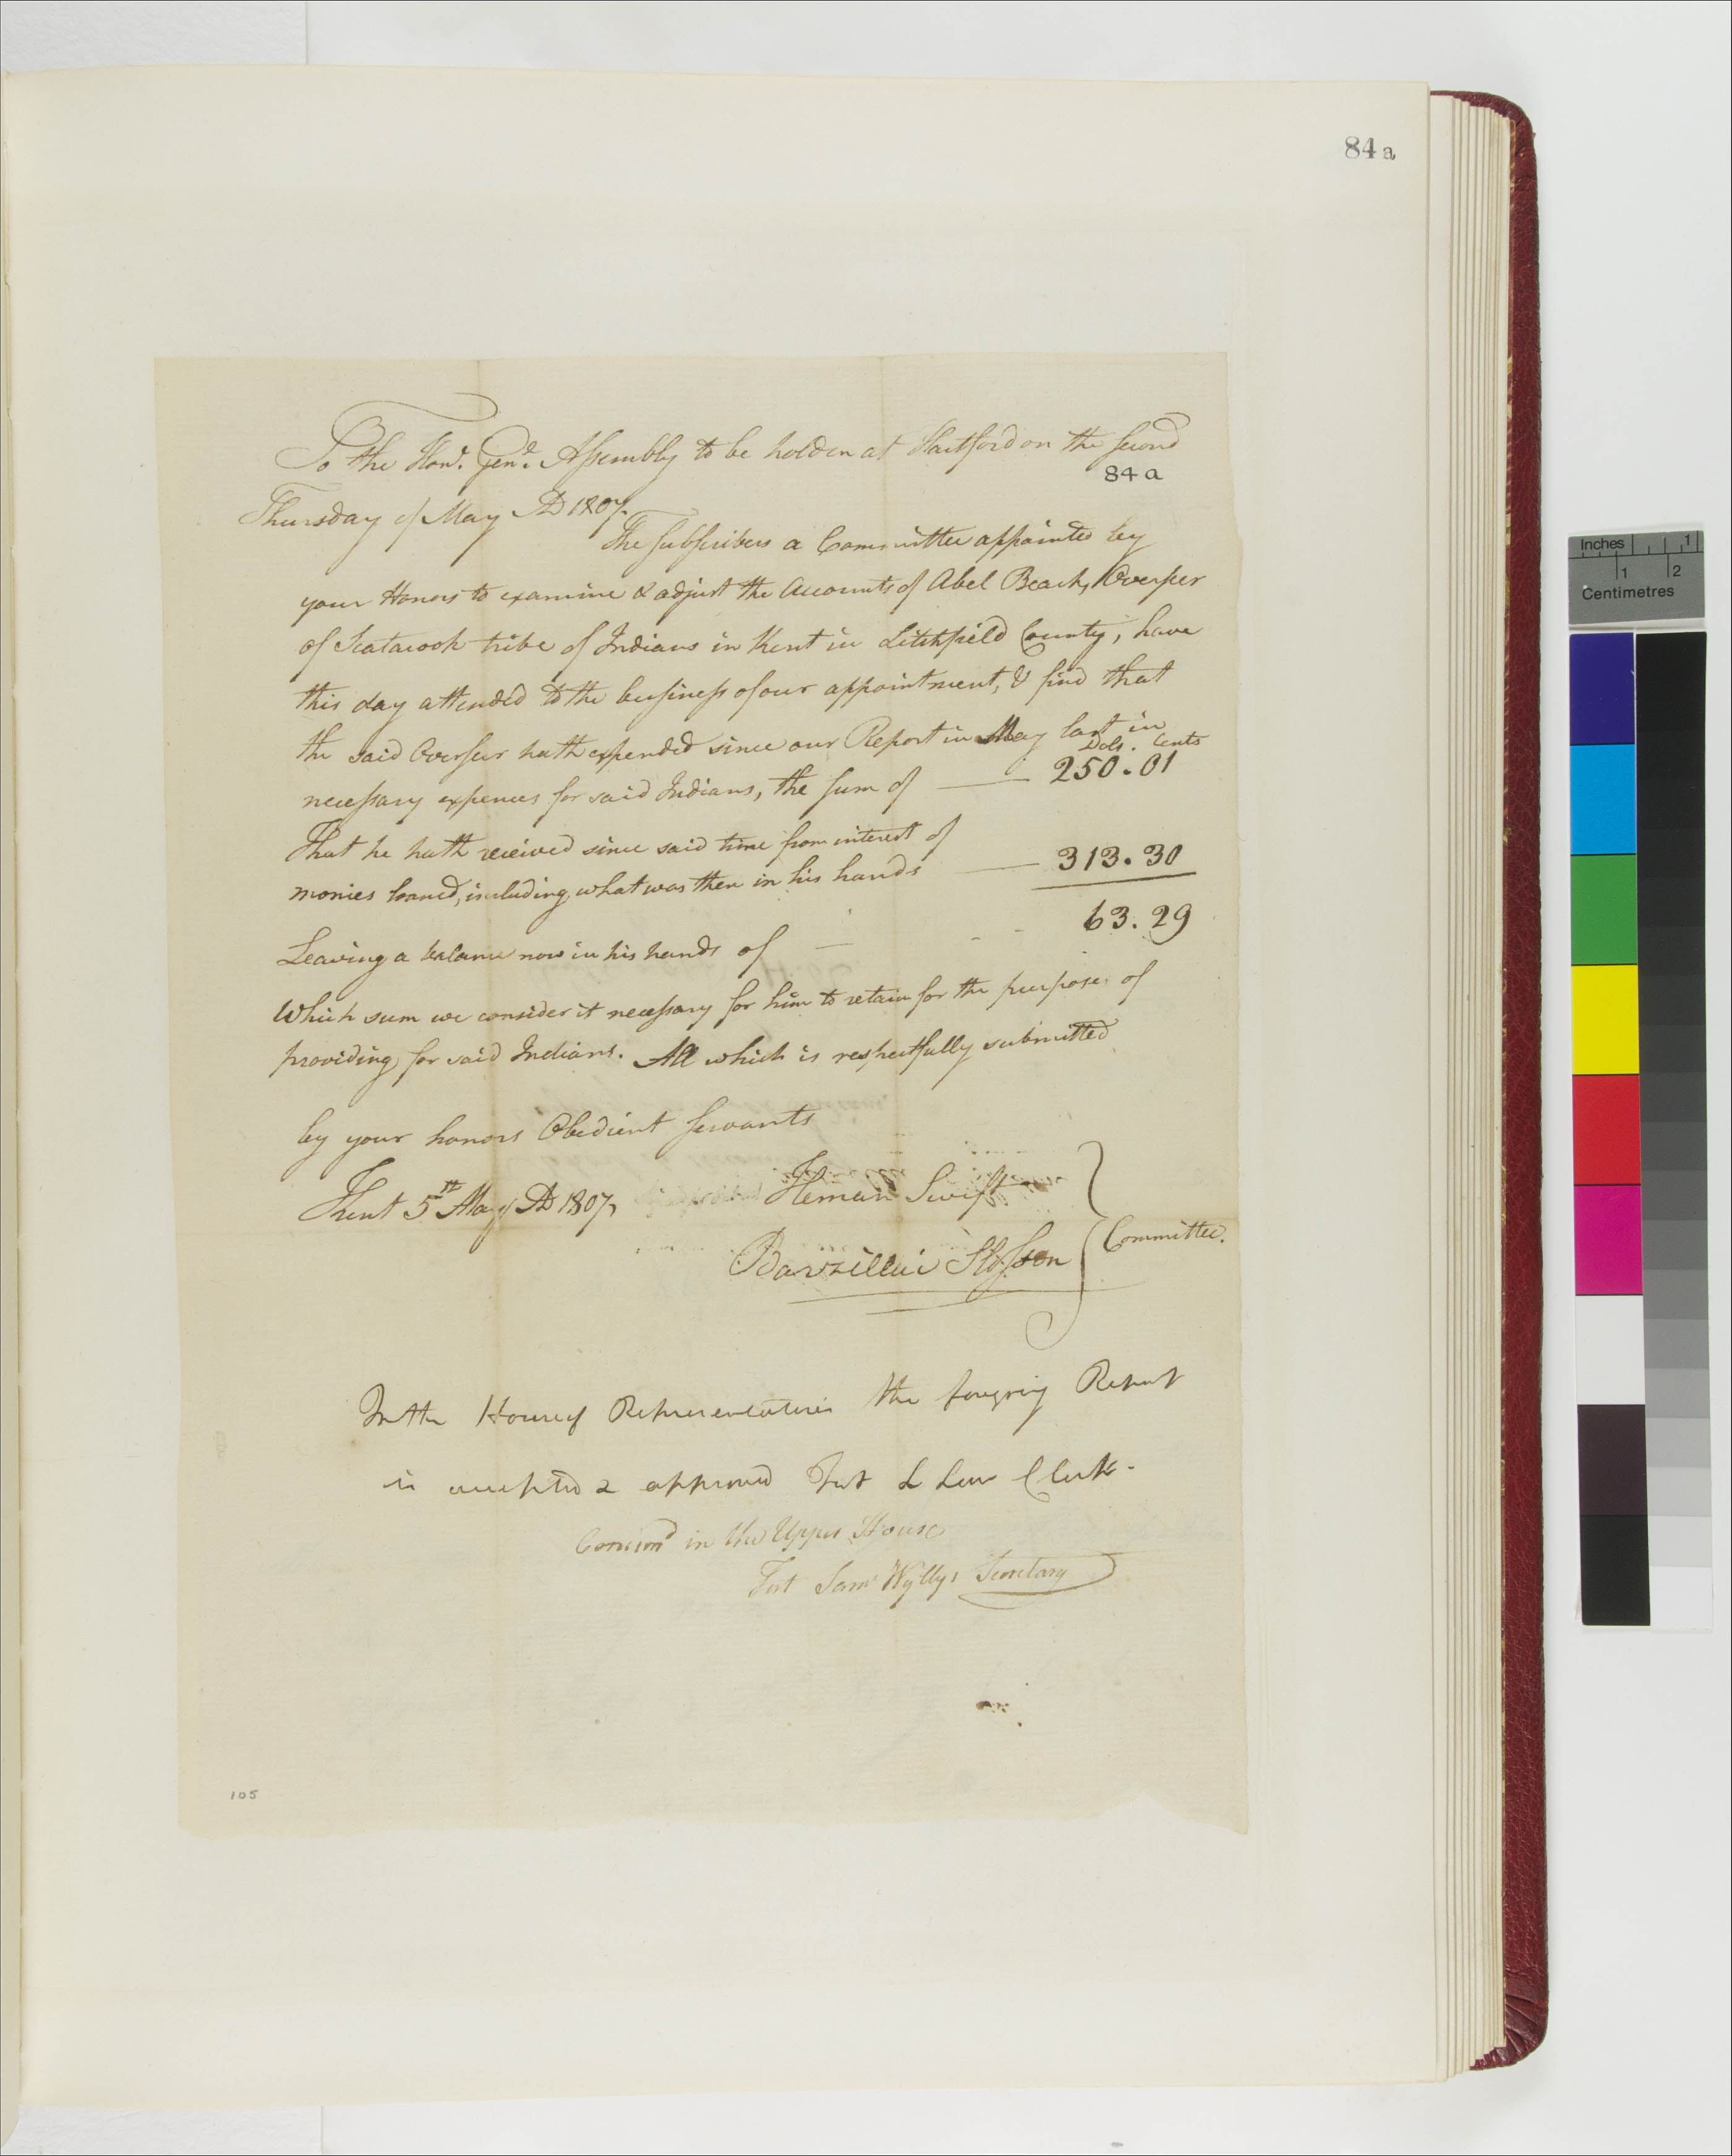 84 a
To the Hon.ᵈ Gen.ˡ Assembly to be holden at Hartford on the second
84 a
Thursday of May AD 1807.
The subscribers a Committee appointed by
your Honors to examine & adjust the Accounts of Abel Beach, Overseer
of Scatacook tribe of Indians in Kent in Litchfield County, have
this day attended to the business of our appointment, & find that
the said Overseer hath expended since our Report in May last in
Dols. Cents
necessary expences for said Indians, the sum of — 250.01
That he hath received since said time from interest of
monies loaned, including what was then in his hands — 313.30
Leaving a balance now in his hands of — - - 63.29
Which sum we consider it necessary for him to retain for the purpose of
providing for said Indians. All which is respectfully submitted
by your honors Obedient servants
Kent 5th May AD 1807, Heman Swift
Barzillai Slosson } Committee.
In the House of Representatives the foregoing Report
is accepted & approved Test L Law Clerk.
Concurrd in the Upper House
Test Saml Wyllys Secretary
105
Inches 1
1 2
Centimetres